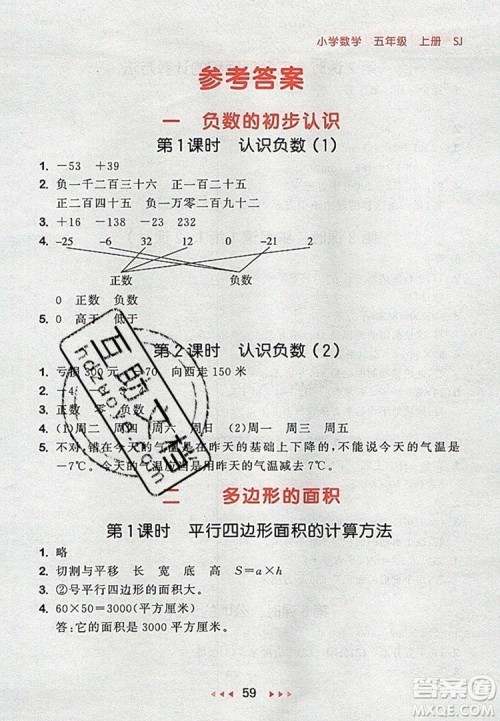 小学数学 五年级 上册 SJ
参考答案
一 负数的初步认识
第1课时 认识负数(1)
1. -53 +39
2. 负一千二百三十六 正一百三十二
正二百四十五 负一万零二百九十二
3. +16 -138 -23 232
4. -25 -6 32 12 0 -21 2
正数 负数
0 正数 负数
5. 0 高于 低于
第2课时 认识负数(2)
1. 亏损300元 +70 向西走150米
2. -4
3. 正数 零 负数
4. (1)周二 周四 周六 周日 (2)周一 周三 周五
5. 不对,错在今天的气温是在昨天的基础上下降的,不能说今天的气温是
-7℃。今天的气温应该是比昨天的气温下降了7℃。
二 多边形的面积
第1课时 平行四边形面积的计算方法
1. 略
2. 切割与平移 长 宽 底 高 S=a×h
3. ②号平行四边形的面积大。
4. 60×50=3000(平方厘米)
答:它的面积是3000平方厘米。
59
互助文档
hdzuoye.com
作业帮
MXQE.COM